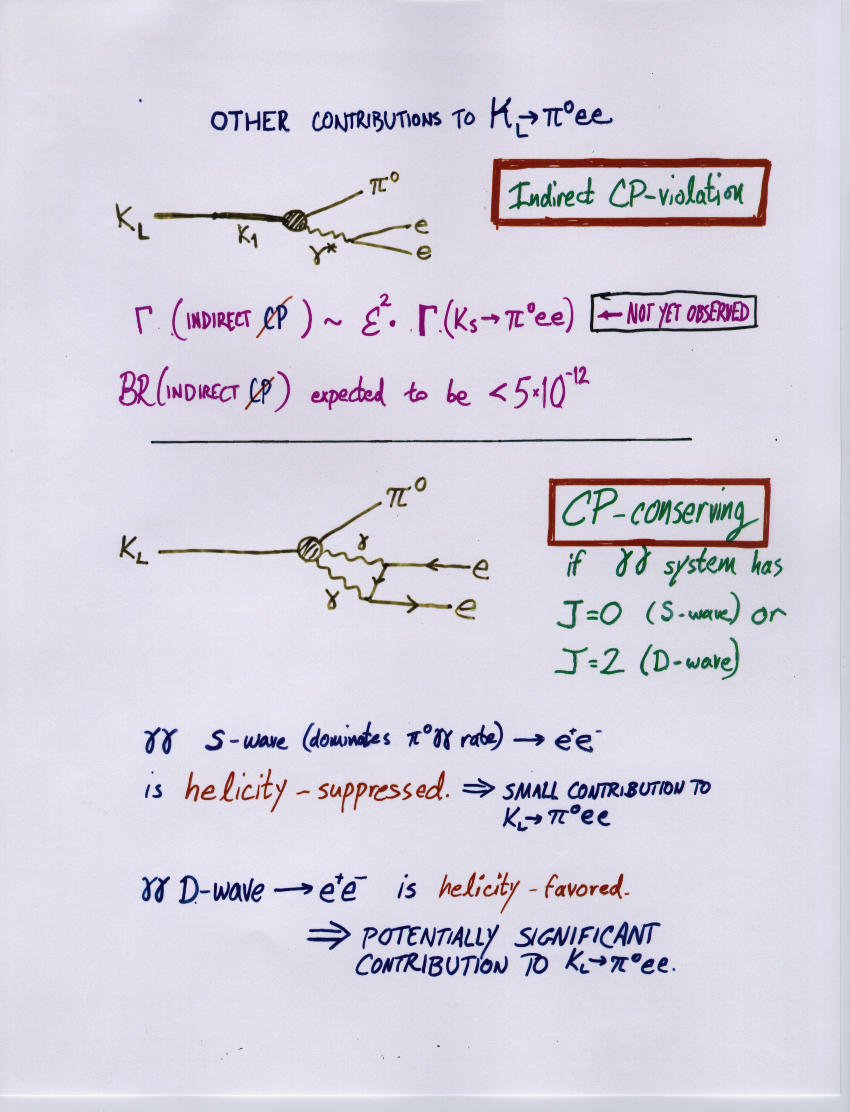 OTHER CONTRIBUTIONS TO K_L→π⁰ee
Indirect CP-violation
K_L K₁ π⁰ γ* e e
Γ (INDIRECT C̸P̸) ~ ε²· Γ(K_S→π⁰ee) ← NOT YET OBSERVED
BR(INDIRECT C̸P̸) expected to be < 5×10⁻¹²
CP-conserving
K_L π⁰ γ γ e e
if γγ system has
J=0 (S-wave) or
J=2 (D-wave)
γγ S-wave (dominates π⁰γγ rate) → e⁺e⁻
is helicity-suppressed. ⇒ SMALL CONTRIBUTION TO
K_L→π⁰ee
γγ D-wave → e⁺e⁻ is helicity-favored.
⇒ POTENTIALLY SIGNIFICANT
CONTRIBUTION TO K_L→π⁰ee.